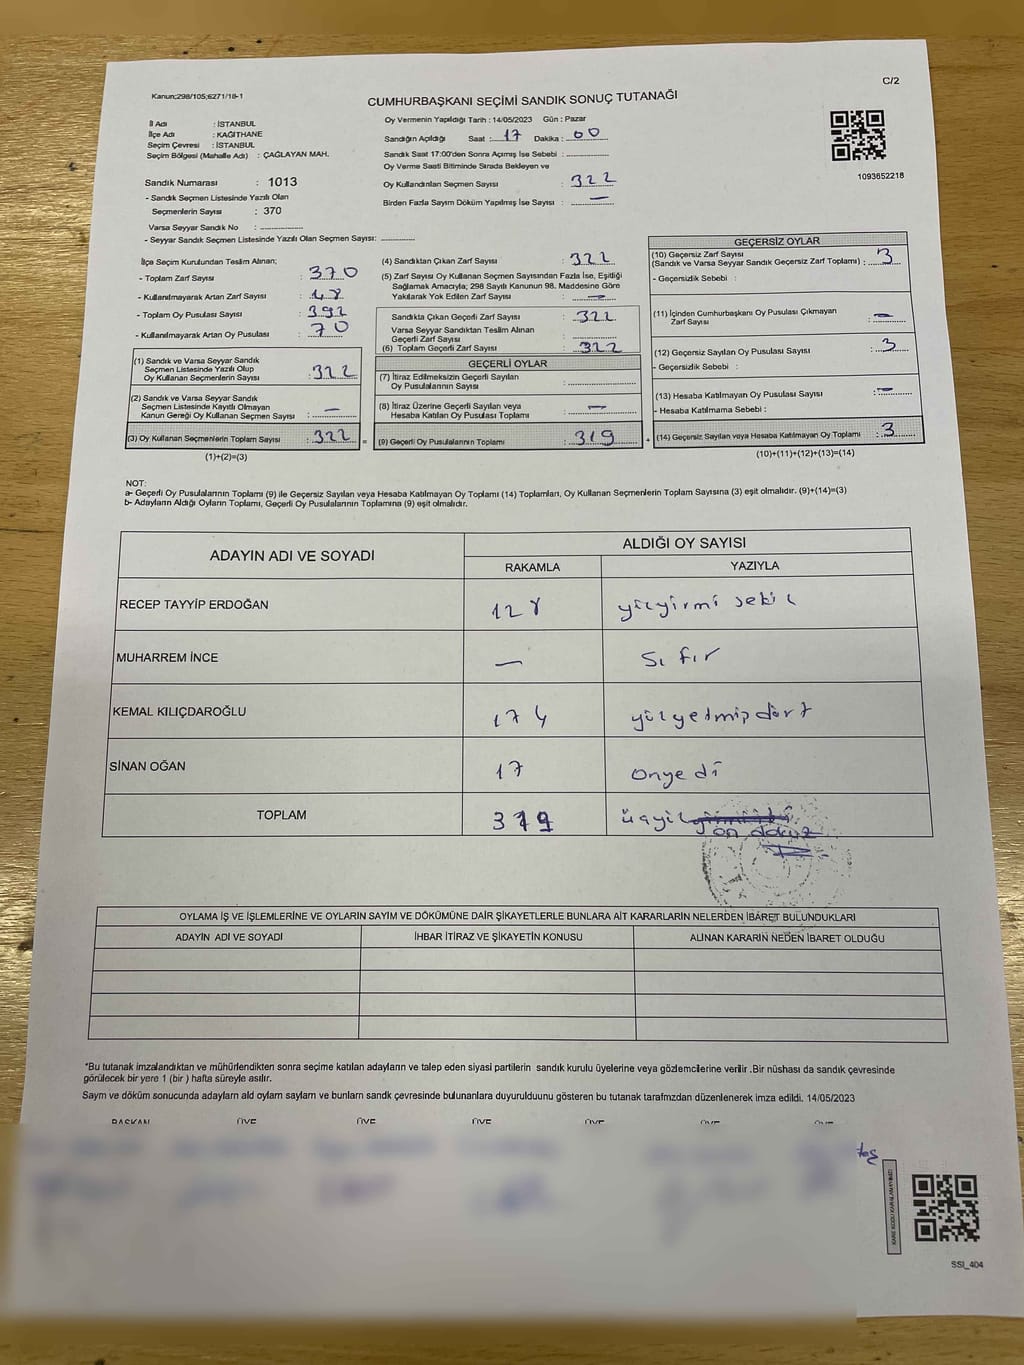 C/2
Kanun;298/105;6271/18-1
CUMHURBAŞKANI SEÇİMİ SANDIK SONUÇ TUTANAĞI
İl Adı : İSTANBUL
İlçe Adı : KAĞITHANE
Seçim Çevresi : İSTANBUL
Seçim Bölgesi (Mahalle Adı) : ÇAĞLAYAN MAH.
Oy Vermenin Yapıldığı Tarih : 14/05/2023 Gün : Pazar
Sandığın Açıldığı Saat : 17 Dakika : 00
Sandık Saat 17:00'den Sonra Açımış İse Sebebi :
Oy Verme Saati Bitiminde Sırada Bekleyen ve
Oy Kullandırılan Seçmen Sayısı : 322
Birden Fazla Sayım Döküm Yapılmış İse Sayısı : —
1093652218
Sandık Numarası : 1013
- Sandık Seçmen Listesinde Yazılı Olan
Seçmenlerin Sayısı : 370
Varsa Seyyar Sandık No :
- Seyyar Sandık Seçmen Listesinde Yazılı Olan Seçmen Sayısı:
İlçe Seçim Kurulundan Teslim Alınan;
- Toplam Zarf Sayısı : 370
- Kullanılmayarak Artan Zarf Sayısı : 48
- Toplam Oy Pusulası Sayısı : 392
- Kullanılmayarak Artan Oy Pusulası : 70
(1) Sandık ve Varsa Seyyar Sandık
Seçmen Listesinde Yazılı Olup
Oy Kullanan Seçmenlerin Sayısı : 322
(2) Sandık ve Varsa Seyyar Sandık
Seçmen Listesinde Kayıtlı Olmayan
Kanun Gereği Oy Kullanan Seçmen Sayısı : —
(3) Oy Kullanan Seçmenlerin Toplam Sayısı : 322 =
(1)+(2)=(3)
(4) Sandıktan Çıkan Zarf Sayısı : 322
(5) Zarf Sayısı Oy Kullanan Seçmen Sayısından Fazla İse, Eşitliği
Sağlamak Amacıyla; 298 Sayılı Kanunun 98. Maddesine Göre
Yakılarak Yok Edilen Zarf Sayısı : —
Sandıkta Çıkan Geçerli Zarf Sayısı : 322
Varsa Seyyar Sandıktan Teslim Alınan
Geçerli Zarf Sayısı :
(6) Toplam Geçerli Zarf Sayısı : 322
GEÇERLİ OYLAR
(7) İtiraz Edilmeksizin Geçerli Sayılan
Oy Pusulalarının Sayısı :
(8) İtiraz Üzerine Geçerli Sayılan veya
Hesaba Katılan Oy Pusulası Toplamı : —
(9) Geçerli Oy Pusulalarının Toplamı : 319 +
GEÇERSİZ OYLAR
(10) Geçersiz Zarf Sayısı
(Sandık ve Varsa Seyyar Sandık Geçersiz Zarf Toplamı) : 3
- Geçersizlik Sebebi :
(11) İçinden Cumhurbaşkanı Oy Pusulası Çıkmayan
Zarf Sayısı : —
(12) Geçersiz Sayılan Oy Pusulası Sayısı : 3
- Geçersizlik Sebebi :
(13) Hesaba Katılmayan Oy Pusulası Sayısı : —
- Hesaba Katılmama Sebebi :
(14) Geçersiz Sayılan veya Hesaba Katılmayan Oy Toplamı : 3
(10)+(11)+(12)+(13)=(14)
NOT:
a- Geçerli Oy Pusulalarının Toplamı (9) ile Geçersiz Sayılan veya Hesaba Katılmayan Oy Toplamı (14) Toplamları, Oy Kullanan Seçmenlerin Toplam Sayısına (3) eşit olmalıdır. (9)+(14)=(3)
b- Adayların Aldığı Oyların Toplamı, Geçerli Oy Pusulalarının Toplamına (9) eşit olmalıdır.
ADAYIN ADI VE SOYADI
ALDIĞI OY SAYISI
RAKAMLA YAZIYLA
RECEP TAYYİP ERDOĞAN 128 yüzyirmi sekiz
MUHARREM İNCE — sıfır
KEMAL KILIÇDAROĞLU 174 yüzyetmişdört
SİNAN OĞAN 17 onyedi
TOPLAM 319 üçyüz
on dokuz
OYLAMA İŞ VE İŞLEMLERİNE VE OYLARIN SAYIM VE DÖKÜMÜNE DAİR ŞİKAYETLERLE BUNLARA AİT KARARLARIN NELERDEN İBARET BULUNDUKLARI
ADAYIN ADI VE SOYADI İHBAR İTİRAZ VE ŞİKAYETİN KONUSU ALINAN KARARIN NEDEN İBARET OLDUĞU
*Bu tutanak imzalandıktan ve mühürlendikten sonra seçime katılan adayların ve talep eden siyasi partilerin sandık kurulu üyelerine veya gözlemcilerine verilir .Bir nüshası da sandık çevresinde
görülecek bir yere 1 (bir ) hafta süreyle asılır.
Sayım ve döküm sonucunda adayların ald oylam saylam ve bunların sandk çevresinde bulunanlara duyurulduunu gösteren bu tutanak tarafmzdan düzenlenerek imza edildi. 14/05/2023
BAŞKAN ÜYE ÜYE ÜYE ÜYE ÜYE ÜYE
SSI_404